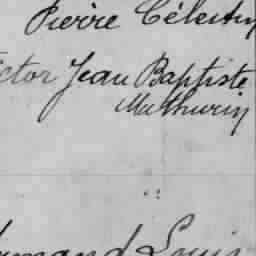 Pierre Célestin
ictor Jean Baptiste
Mathurin
rmand Louis